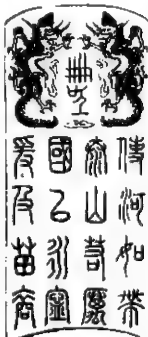 使河如帶
泰山若厲
國以永寧
爰及苗裔